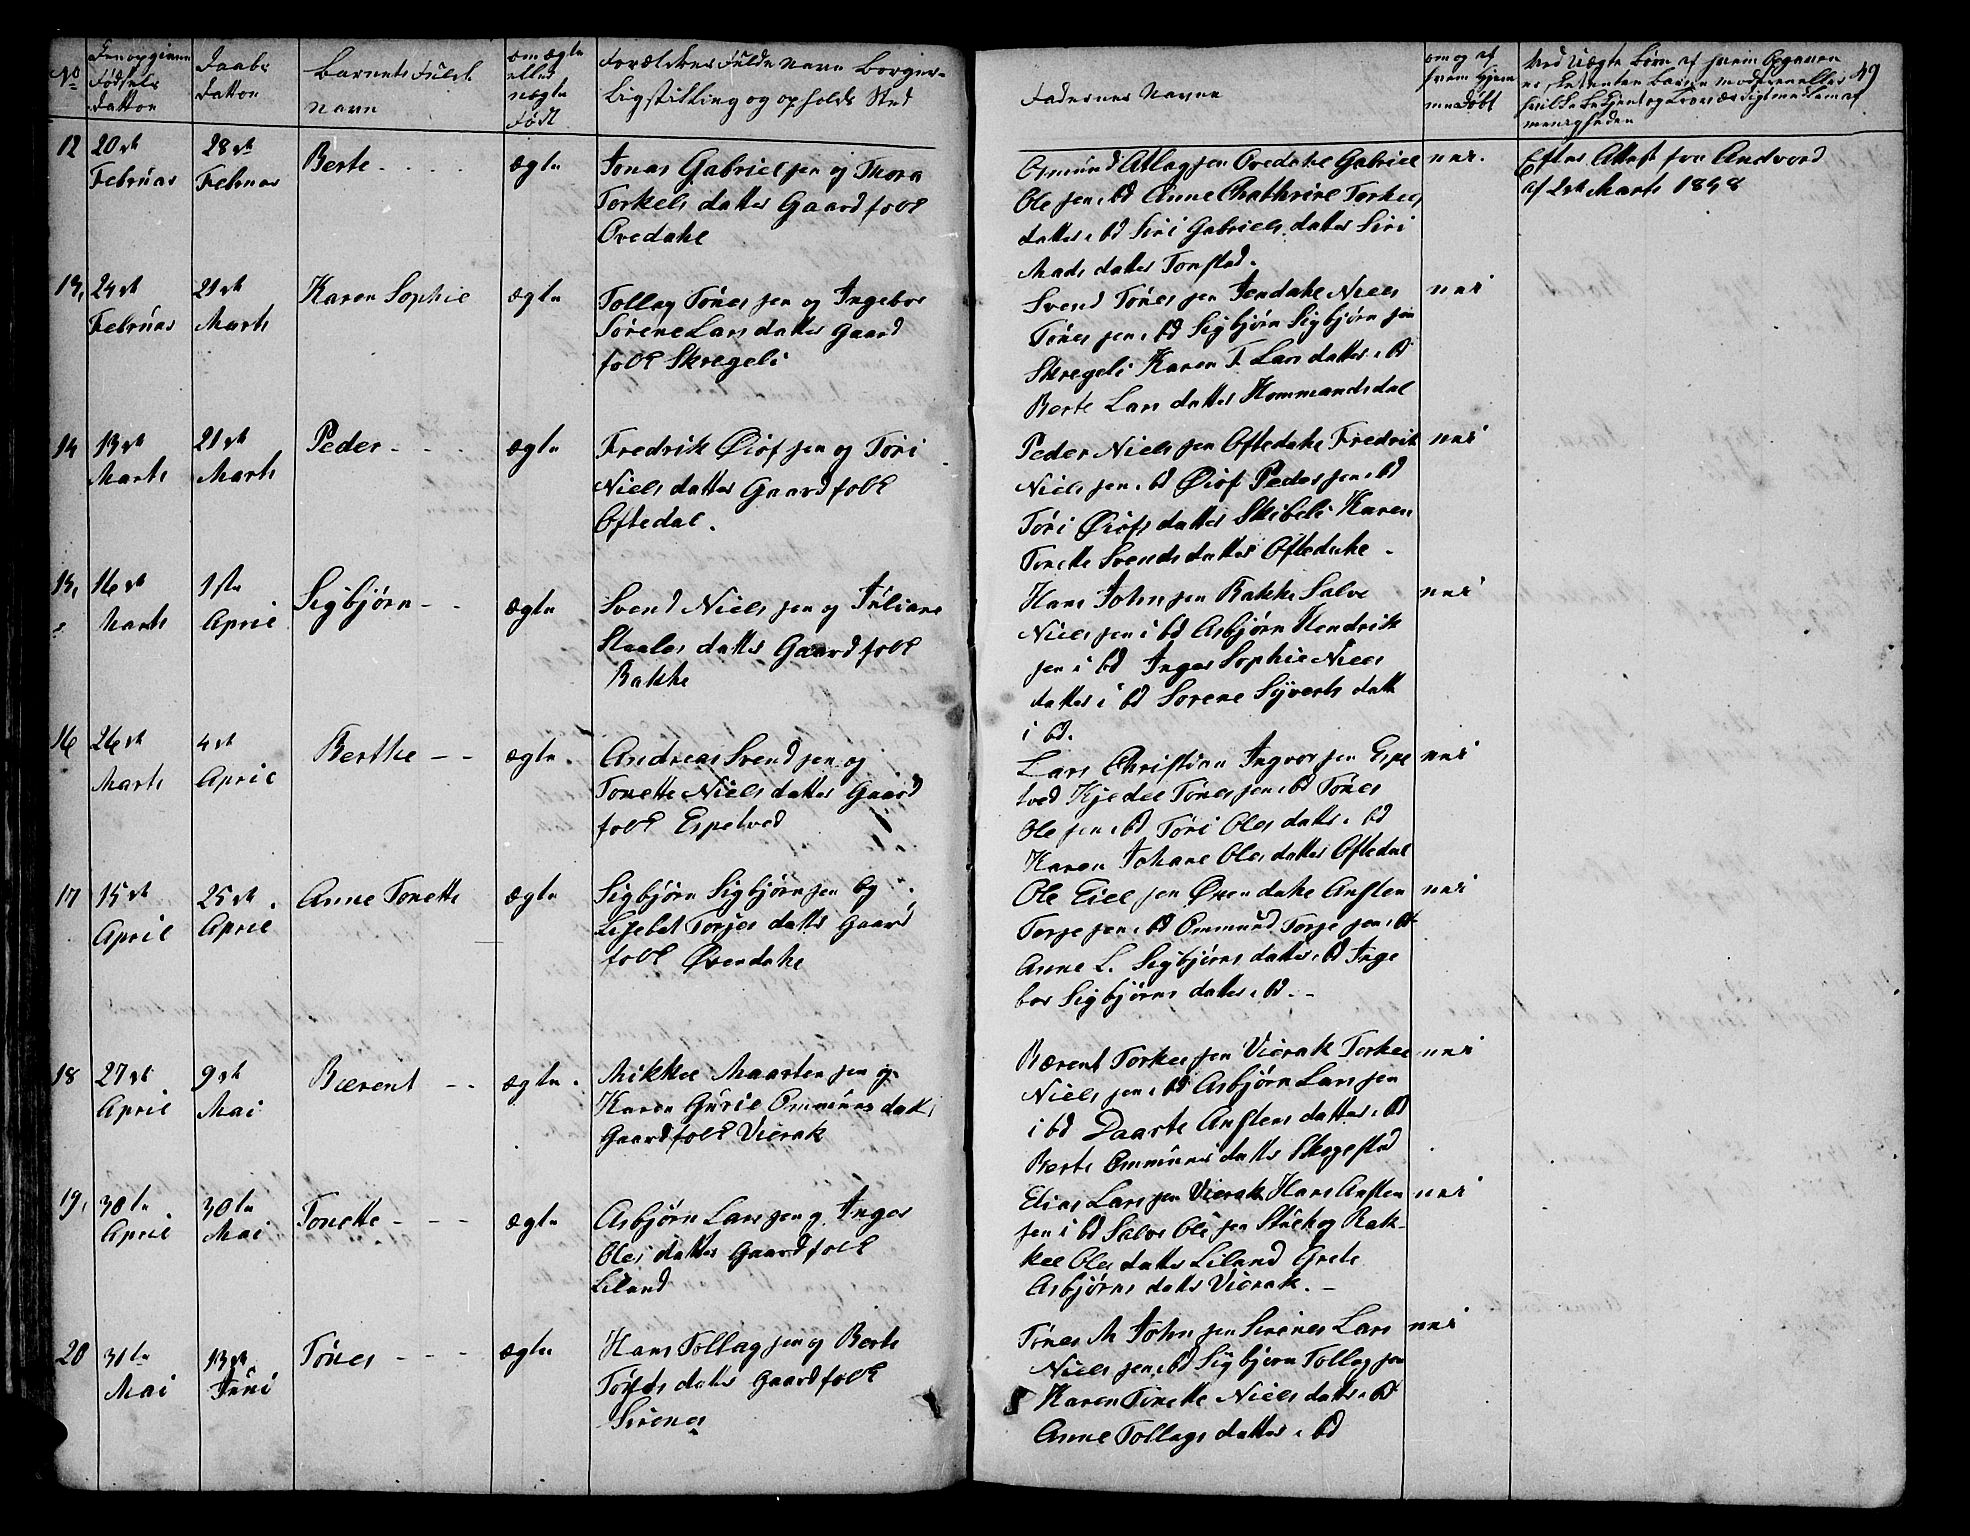 No
Fødsels
Datton
Daabs
Datton
Barnets Fulde
navn
om ægte
eller
uægte
Født
Forældrenes Fulde navn Borger-
Ligstilling og opholds Sted
Fadernes Navne
om og af
hvem Hjem
me Døbt
49
menigheden
12
20de
Februar
28de
Februar
Berte
ægte
Jonas Gabrielsen og Thora
Torkels datter Gaardfolk
Ovedahl
Osmund Atlagsen Ovedahl Gabriel
Olesen ibd Anne Chathrine Torkels
datter ibd Siri Gabriels datter Siri
Mads datter Tonstad.
nei.
Efter Attest fra Andvord
af 2de Marts 1858
13,
24de
Februar
21de
Marts
Karen Sophie
ægte
Tollag Tønnessen og Ingebor
Sørene Lars datter Gaard
folk Skregeli
Svend Tønnessen Jendahl Niels
Tønnessen ibd Sigbjørn Sigbjørnsen
Skregeli Karen T. Lars datter ibd
Berte Lars datter Hommandsdal
nei
14
13de
Marts
21de
Marts
Peder
ægte
Fredrik Øiofsen og Tøri
Niels datter Gaardfolk
Oftedal.
Peder Nielsen Oftedahl Fredrik
Nielsen ibd Øiof Pedersen ibd
Tøri Øiofs datter Skibeli Karen
Tonette Svends datter Oftedahl
nei
15,
16de
Marts
1ste
April
Sigbjørn
ægte
Svend Nielsen og Juliane
Staales datter Gaardfolk
Bakke
Hans Johnsen Bakke Salve
Nielsen i bd Asbjørn Hendrik
sen i bd Inger Sophie Niels
datter i bd Sorene Syverts datt
i bd.
nei
16
26de
Marts
4de
April
Berthe
ægte.
Andreas Svendsen og
Tonette Niels datter Gaard
folk Espetved
Lars Christian Ingvorsen Espe
tved Kjedel Tønnessen ibd Tønes
Olesen ibd Tøri Oles datter ibd
Karen Johane Oles datter Oftedal
nei
17
15de
April
25de
April
Anne Tonette
ægte
Sigbjørn Sigbjørnsen og
Lisebet Torjes datter Gaard
folk Øvendahl
Ole Eielsen Øvendahl Ansten
Torjesen ibd Ommund Torjesen ibd
Anne L. Sigbjørns datter ibd Inge
bor Sigbjørns datter ibd.
nei
18
27de
April
9de
Mai
Bærent
ægte.
Mikkel Maartensen og
Karen Gurie Ommuns datt
Gaardfolk Vierak
Bærent Torkelsen Vierak Torkel
Nielsen ibd Asbjørn Larssen
i bd Daarte Anstens datter ibd
Berte Ommuns datter Skogestad
nei
19,
30te
April
30te
Mai
Tonette
ægte
Asbjørn Larssen og Inger
Oles datter Gaardfolk
Liland
Elias Larssen Vierak Hans Ansten
sen i bd Salve Olesen Støle og Rak-
kel Oles datter Liland Grete
Asbjørns datter Vierak.
nei
20
31te
Mai
13de
Juni
Tønes
ægte
Hans Tollagsen og Berte
Tønes datter Gaardfolk
Sirenes
Tønes M Johnsen Sirenes Lars
Nielsen ibd Sigbjørn Tollagsen
Karen Tonette Niels datter ibd
Anne Tollags datter ibd
nei